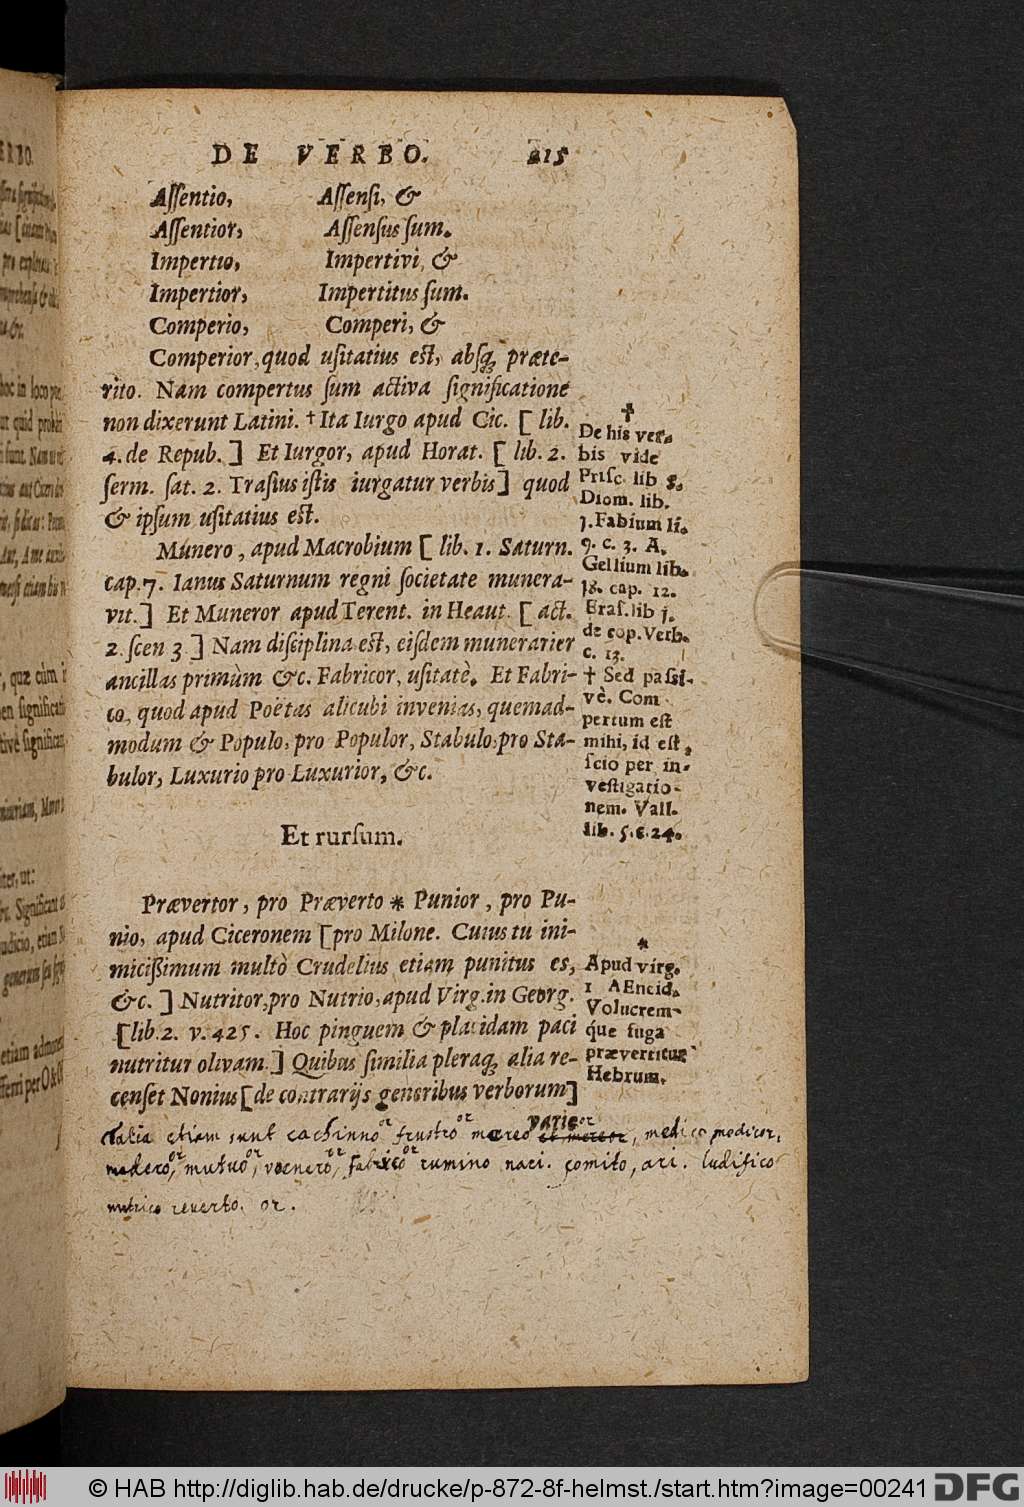 DE VERBO. 215
Aſſentio, Aſſenſi, &
Aſſentior, Aſſenſus ſum.
Impertio, Impertivi, &
Impertior, Impertitus ſum.
Comperio, Comperi, &
Comperior, quod uſitatius eſt, abſq́ꝫ præte-
rito. Nam compertus ſum activa ſignificatione
non dixerunt Latini. † Ita Iurgo apud Cic. [ lib.
4. de Repub. ] Et Iurgor, apud Horat. [ lib. 2.
ſerm. ſat. 2. Traſius iſtis iurgatur verbis ] quod
& ipſum uſitatius eſt.
Munero, apud Macrobium [ lib. 1. Saturn.
cap. 7. Ianus Saturnum regni ſocietate munera-
vit. ] Et Muneror apud Terent. in Heaut. [ act.
2. ſcen 3 ] Nam diſciplina eſt, eiſdem munerarier
ancillas primùm &c. Fabricor, uſitatè. Et Fabri-
co, quod apud Poëtas alicubi invenias, quemad-
modum & Populo, pro Populor, Stabulo, pro Sta-
bulor, Luxurio pro Luxurior, &c.
†
De his ver-
bis vide
Priſc. lib 8.
Diom. lib.
1. Fabium li.
9. c. 3. A.
Gellium lib.
18. cap. 12.
Eraſ. lib 1.
de cop. Verb.
c. 13.
† Sed paſſi-
vè. Com
pertum eſt
mihi, id eſt,
ſcio per in-
veſtigatio-
nem. Vall.
lib. 5. c. 24.
Et rurſum.
Prævertor, pro Præverto * Punior, pro Pu-
nio, apud Ciceronem [ pro Milone. Cuius tu ini-
miciſſimum multò Crudelius etiam punitus es,
&c. ] Nutritor, pro Nutrio, apud Virg. in Georg.
[ lib. 2. v. 425. Hoc pinguem & placidam paci
nutritur olivam. ] Quibus ſimilia pleraq́ꝫ alia re-
cenſet Nonius [ de contrarijs generibus verborum ]
*
Apud virg.
1 AEneid.
Volucrem-
q́ue fuga
prævertitur
Hebrum.
Talia etiam sunt cachinno or frustro or mereo or, medico medicor,
or mutuo or, or, fabrico or rumino nari. comito, ari. ludifico
nutrico reverto. or.